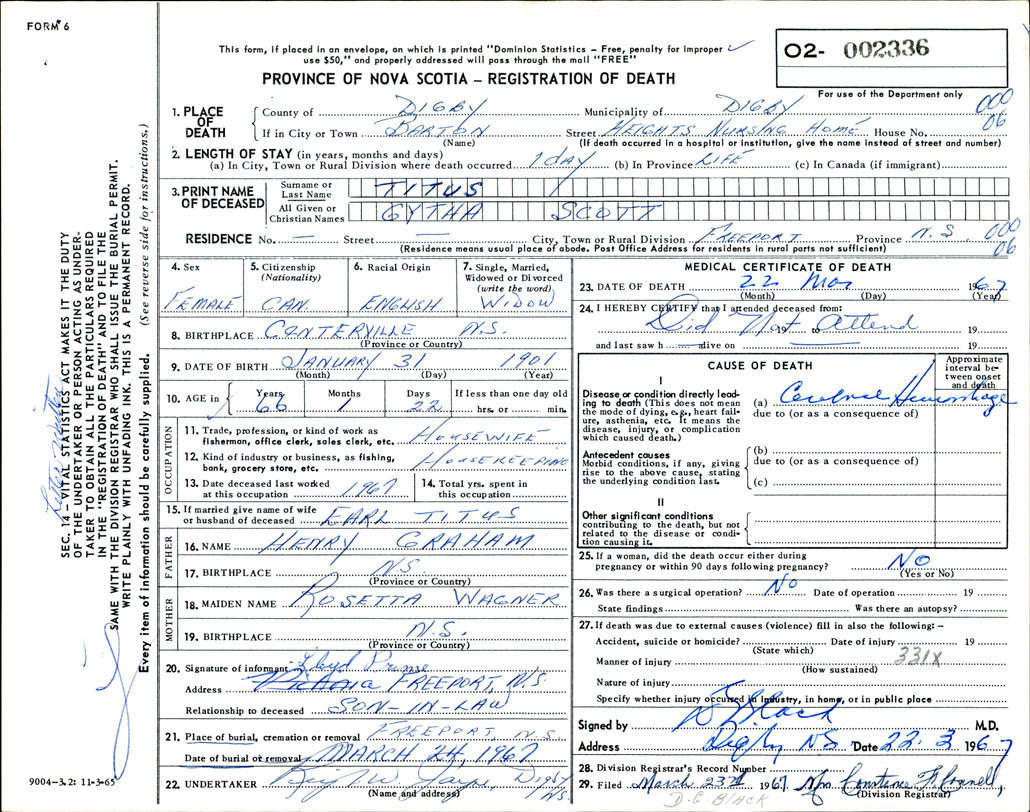 FORM 6
This form, if placed in an envelope, on which is printed "Dominion Statistics – Free, penalty for improper
use $50," and properly addressed will pass through the mail "FREE"
PROVINCE OF NOVA SCOTIA – REGISTRATION OF DEATH
02- 002336
For use of the Department only
000
06
1. PLACE OF DEATH
County of DIGBY Municipality of DIGBY
If in City or Town BARTON Street HEIGHTS NURSING HOME House No.
(Name) (If death occurred in a hospital or institution, give the name instead of street and number)
2. LENGTH OF STAY (in years, months and days)
(a) In City, Town or Rural Division where death occurred 1 DAY (b) In Province LIFE (c) In Canada (if immigrant)
3. PRINT NAME OF DECEASED
Surname or Last Name TITUS
All Given or Christian Names GYTHA SCOTT
RESIDENCE No. — Street — City, Town or Rural Division FREEPORT Province N.S. 000
06
(Residence means usual place of abode. Post Office Address for residents in rural parts not sufficient)
4. Sex
FEMALE
5. Citizenship
(Nationality)
CAN.
6. Racial Origin
ENGLISH
7. Single, Married,
Widowed or Divorced
(write the word)
WIDOW
8. BIRTHPLACE CENTERVILLE N.S.
(Province or Country)
9. DATE OF BIRTH JANUARY 31 1901
(Month) (Day) (Year)
10. AGE in
Years 66
Months 1
Days 22
If less than one day old
hrs. or min.
OCCUPATION
11. Trade, profession, or kind of work as
fisherman, office clerk, sales clerk, etc. HOUSEWIFE
12. Kind of industry or business, as fishing,
bank, grocery store, etc. HOUSEKEEPING
13. Date deceased last worked
at this occupation 1967
14. Total yrs. spent in
this occupation
15. If married give name of wife
or husband of deceased EARL TITUS
FATHER
16. NAME HENRY GRAHAM
17. BIRTHPLACE N.S.
(Province or Country)
MOTHER
18. MAIDEN NAME ROSETTA WAGNER
19. BIRTHPLACE N.S.
(Province or Country)
20. Signature of informant Lloyd Prime
Address Victoria FREEPORT, N.S.
Relationship to deceased SON-IN-LAW
21. Place of burial, cremation or removal FREEPORT N.S.
Date of burial or removal MARCH 24, 1967
22. UNDERTAKER Digby NS
(Name and address)
MEDICAL CERTIFICATE OF DEATH
23. DATE OF DEATH 22 Mar 1967
(Month) (Day) (Year)
24. I HEREBY CERTIFY that I attended deceased from:
Did Not Attend 19 19
and last saw h alive on 19
CAUSE OF DEATH
Approximate
interval be-
tween onset
and death
I
Disease or condition directly lead-
ing to death (This does not mean
the mode of dying, e.g., heart fail-
ure, asthenia, etc. It means the
disease, injury, or complication
which caused death.)
(a) Cerebral Hemorrhage
due to (or as a consequence of)
Antecedent causes
Morbid conditions, if any, giving
rise to the above cause, stating
the underlying condition last.
(b)
due to (or as a consequence of)
(c)
II
Other significant conditions
contributing to the death, but not
related to the disease or condi-
tion causing it.
25. If a woman, did the death occur either during
pregnancy or within 90 days following pregnancy? No
(Yes or No)
26. Was there a surgical operation? No Date of operation 19
State findings Was there an autopsy?
27. If death was due to external causes (violence) fill in also the following: –
Accident, suicide or homicide? Date of injury 19
(State which)
Manner of injury 331X
(How sustained)
Nature of injury
Specify whether injury occurred in industry, in home, or in public place
Signed by D Black M.D.
Address Digby NS Date 22.3 1967
28. Division Registrar's Record Number
29. Filed March 23rd 1967 Mrs Constance
(Division Registrar)
D.C. BLACK
9004-3.2: 11-3-65
Letter Written
SEC. 14 – VITAL STATISTICS ACT MAKES IT THE DUTY
OF THE UNDERTAKER OR PERSON ACTING AS UNDER-
TAKER TO OBTAIN ALL THE PARTICULARS REQUIRED
IN THE "REGISTRATION OF DEATH" AND TO FILE THE
SAME WITH THE DIVISION REGISTRAR WHO SHALL ISSUE THE BURIAL PERMIT.
WRITE PLAINLY WITH UNFADING INK. THIS IS A PERMANENT RECORD.
Every item of information should be carefully supplied. (See reverse side for instructions.)